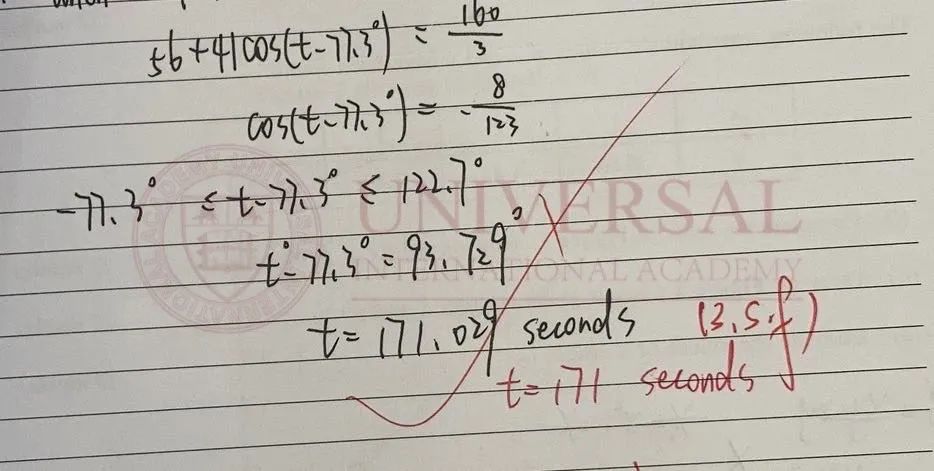 56+41cos(t-77.3°) = 160/3
cos(t-77.3°) = -8/123
-77.3° ≤ t-77.3° ≤ 122.7°
t°-77.3° = 93.729°
t = 171.029 seconds (3.s.f)
t = 171 seconds
UNIVERSAL
INTERNATIONAL ACADEMY